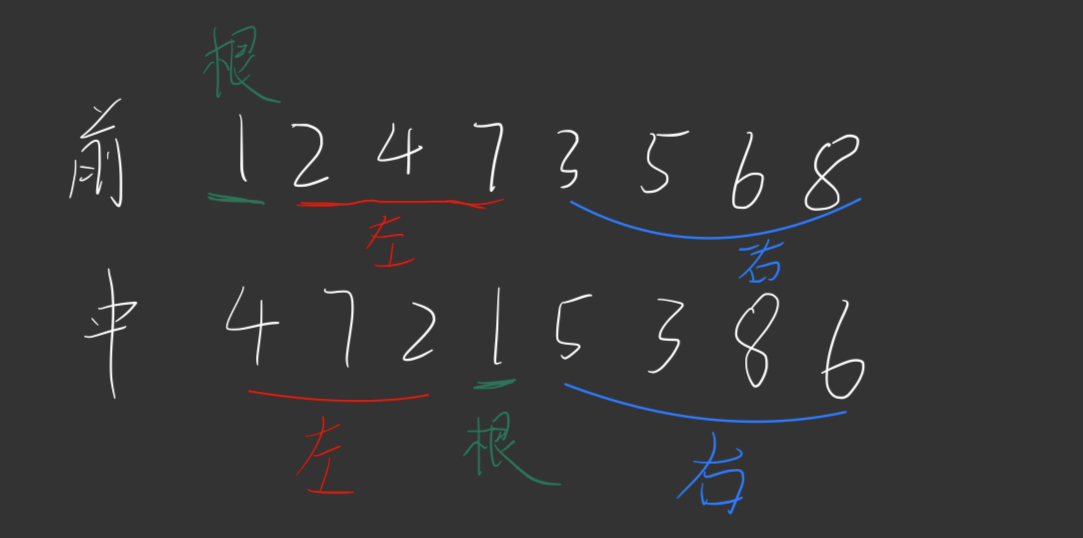 根
前 1 2 4 7 3 5 6 8
左 右
中 4 7 2 1 5 3 8 6
左 根 右